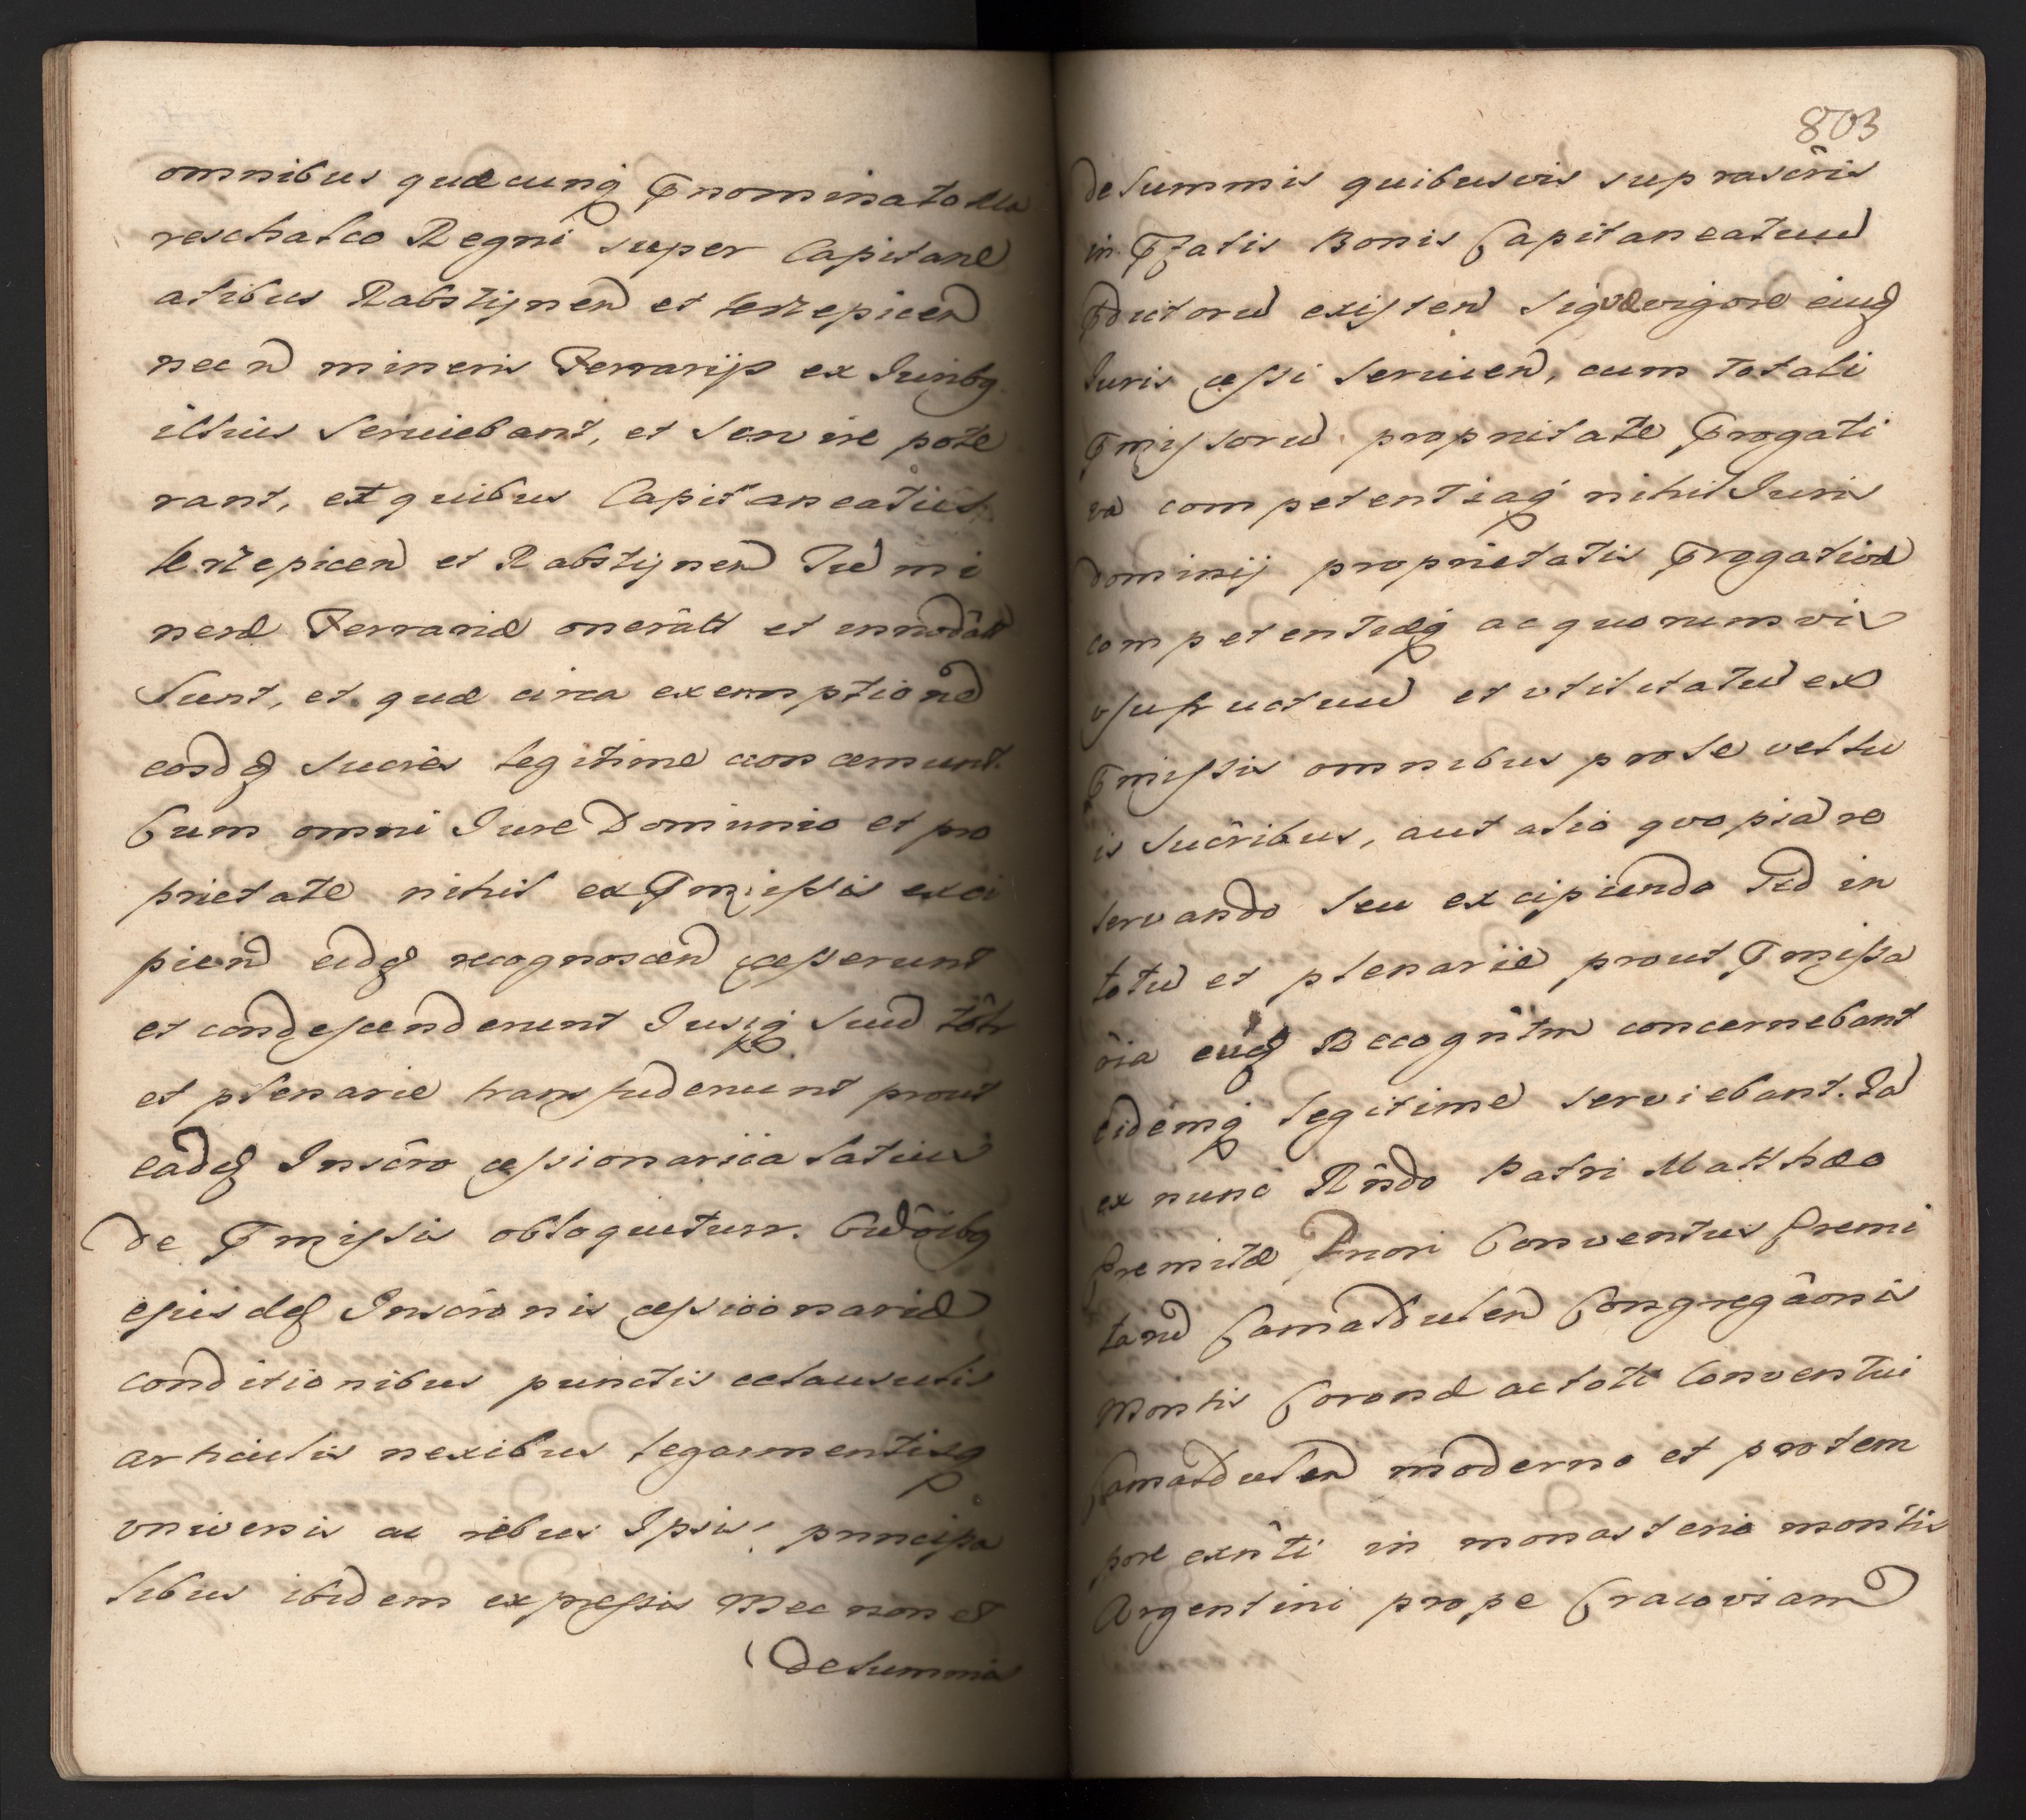 omnibus quæcunq prænominato Ma
reschalco Regni super Capitane
atibus Rabstijnen et Lerzepicen
necn mineris Ferrarijs ex Iuribq
illius Seruiebant, et servire pote
rant, et quibus Capitaneatus
Lerzepicen et Rabstijnen Tū mi
neræ Ferrariæ onerâtt et innodâtt
Sunt, et quæ circa exemptionē
eosdē Sucrēs legitime concernunt.
Cum omni Iure Dominio et pro
prietate nihil ex præmissis exci
piend eidē recognoscend cesserunt
et condescenderunt Iusq suū tôtr
et plenarie transfuderunt prout
eadē Inscrô cessionaria latius
de præmissis obloquutur. Cū ôibq
eiusdē Inscrônis cessionariæ
conditionibus punctis clausulis
articulis nexibus legarmentisq
vniversis ac rebus Ipsis principa
libus ibidem expressis Nec non et
de Summis
803
de Summis quibusvis suprascrîis
in præfatis Bonis Capitaneatuū
præductorū existen sigve vigore eiuē
Iuris cessi servien, cum totali
præmissorū proprietate prærogati
va competentiaq nihil Iuris
dominij proprietatis prærogativæ
competentiæq ac quorumvis
vsufructuū et vtilitatū ex
præmissis omnibus pro se vel su
is Sucribus, aut alio quopiā re
servando seu excipiendo Sed in
totū et plenarie prout præmissa
ôia euē Recognîtm concernebant
eidemq legitime serviebant. Ia
ex nunc Rñdo Patri Matthæo
Eremitæ Priori Conventus Eremi
tarū Camaldulen Congregâonis
Montis Coronæ ac toti Conventui
Camaldulen moderno et pro tem
pore exñti in monasterio montis
Argentini prope Cracoviam